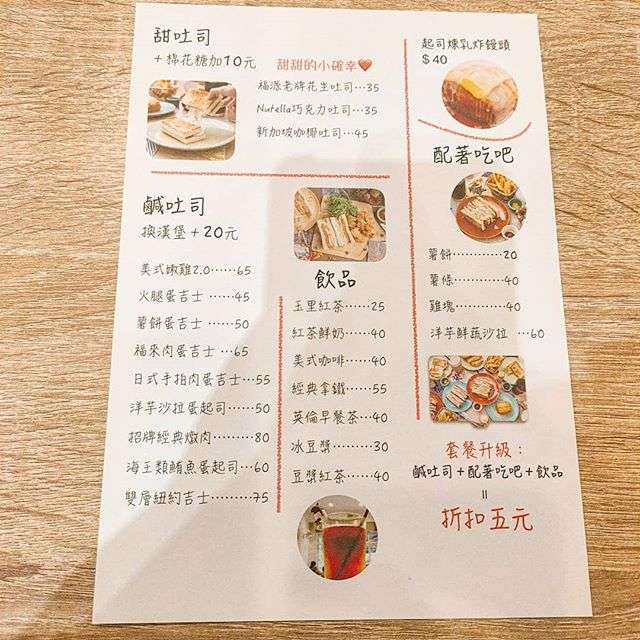 甜吐司
+ 棉花糖加10元
甜甜的小確幸❤
福源老牌花生吐司…35
Nutella巧克力吐司…35
新加坡咖椰吐司…45
鹹吐司
換漢堡+20元
美式嫩雞2.0……65
火腿蛋吉士 ……45
薯餅蛋吉士 ……50
福來肉蛋吉士 …65
日式手拍肉蛋吉士…55
洋芋沙拉蛋起司……50
招牌經典燉肉………80
海王類鮪魚蛋起司…60
雙層紐約吉士………75
飲品
玉里紅茶……25
紅茶鮮奶……40
美式咖啡……40
經典拿鐵……55
英倫早餐茶…40
冰豆漿………30
豆漿紅茶……40
起司煉乳炸饅頭
$40
配著吃吧
薯餅…………20
薯條…………40
雞塊…………40
洋芋鮮蔬沙拉 …60
套餐升級:
鹹吐司+配著吃吧+飲品
=
折扣五元